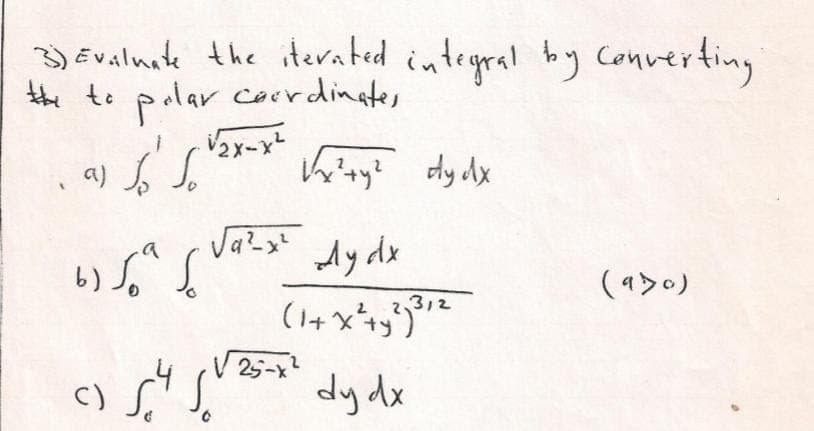 3) Evaluate the iterated integral by converting
the to polar coordinates
a) ∫₀¹ ∫₀^√(2x-x²) √(x²+y²) dy dx
b) ∫₀^a ∫₀^√(a²-x²) dy dx / (1+x²+y²)^3/2 (a>0)
c) ∫₀⁴ ∫₀^√(25-x²) dy dx